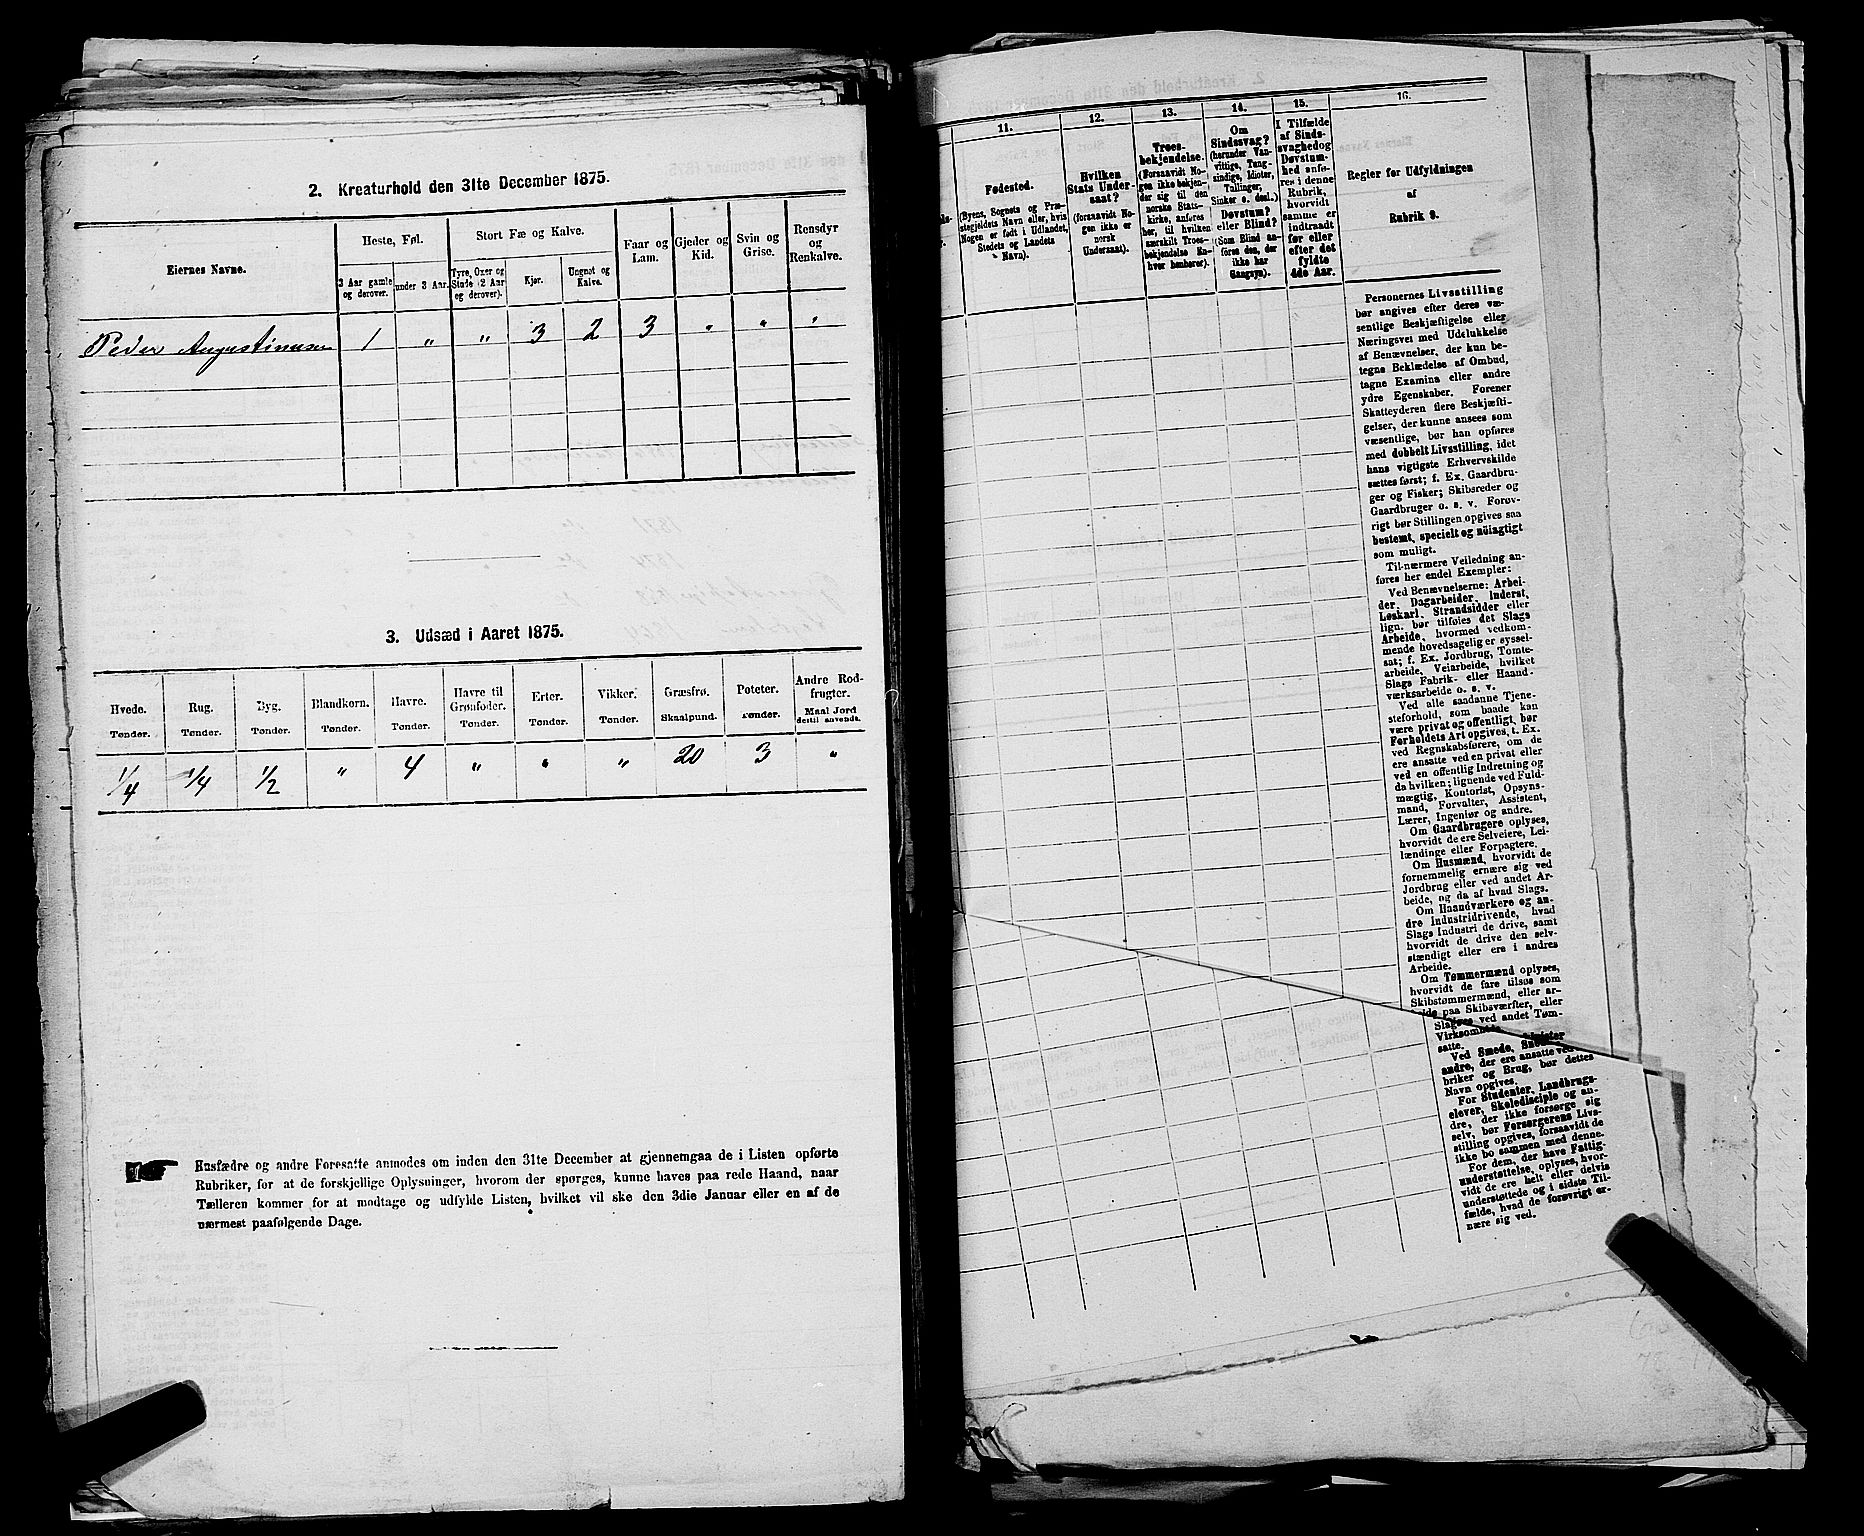 2. Kreaturhold den 31te December 1875.
Eiernes Navne.
Heste, Føl.
Stort Fæ og Kalve.
Faar og
Lam.
Gjeder og
Kid.
Svin og
Grise.
Rensdyr
og
Renkalve.
3 Aar gamle
og derover.
under 3 Aar.
Tyre, Oxer og
Stude (2 Aar
og derover).
Kjør.
Ungnøt og
Kalve.
Peder Augustinusen 1 " " 3 2 3 " " "
3. Udsæd i Aaret 1875.
Hvede.
Tønder.
Rug.
Tønder.
Byg.
Tønder.
Blandkorn.
Tønder.
Havre.
Tønder.
Havre til
Grønfoder.
Tønder.
Erter.
Tønder.
Vikker.
Tønder.
Græsfrø.
Skaalpund.
Poteter.
Tønder.
Andre Rod-
frugter.
Maal Jord
dertil anvendt.
1/4 1/4 1/2 " 4 " " " 20 3 "
Husfædre og andre Foresatte anmodes om inden den 31te December at gjennemgaa de i Listen opførte
Rubriker, for at de forskjellige Oplysninger, hvorom der spørges, kunne haves paa rede Haand, naar
Tælleren kommer for at modtage og udfylde Listen, hvilket vil ske den 3die Januar eller en af de
nærmest paafølgende Dage.
11.
Fødested.
(Byens, Sognets og Præ-
stegjeldets Navn eller, hvis
Nogen er født i Udlandet,
Stedets og Landets
Navn).
12.
Hvilken
Stats Under-
saat?
(forsaavidt No-
gen ikke er
norsk
Undersaat).
13.
Troes-
bekjendelse.
(Forsaavidt No-
gen ikke bekjen-
der sig til den
norske Stats-
kirke, anføres
her, til hvilken
særskilt Troes-
bekjendelse En-
hver henhører).
14.
Om
Sindssvag?
(herunder Van-
vittige, Tung-
sindige, Idioter,
Tullinger,
Sinker o. desl.)
Døvstum?
eller Blind?
(Som Blind an-
føres den, der
ikke har
Gangsyn).
15.
I Tilfælde
af Sinds-
svaghed og
Døvstum-
hed anfø-
res i denne
Rubrik,
hvorvidt
samme er
indtraadt
før eller
efter det
fyldte
4de Aar.
16.
Regler for Udfyldningen
af
Rubrik 9.
Personernes Livsstilling
bør angives efter deres væ-
sentlige Beskjæftigelse eller
Næringsvei med Udelukkelse
af Benævnelser, der kun be-
tegne Beklædelse af Ombud,
tagne Examina eller andre
ydre Egenskaber. Forener
Skatteyderen flere Beskjæfti-
gelser, der kunne ansees som
væsentlige, bør han opføres
med dobbelt Livsstilling, idet
hans vigtigste Erhvervskilde
sættes først; f. Ex. Gaardbru-
ger og Fisker; Skibsreder og
Gaardbruger o. s. v. Forøv-
rigt bør Stillingen opgives saa
bestemt, specielt og nöiagtigt
som muligt.
Til nærmere Veiledning an-
føres her endel Exempler:
Ved Benævnelserne: Arbei-
der, Dagarbeider, Inderst,
Løskarl, Strandsidder eller
lign. bør tilføies det Slags
Arbeide, hvormed vedkom-
mende hovedsagelig er syssel-
sat; f. Ex. Jordbrug, Tomte-
arbeide, Veiarbeide, hvilket
Slags Fabrik- eller Haand-
værksarbeide o. s. v.
Ved alle saadanne Tjene-
steforhold, som baade kan
være privat og offentligt, bør
Forholdets Art opgives, t. Ex.
ved Regnskabsførere, om de
ere ansatte ved en privat eller
ved en offentlig Indretning og
da hvilken; lignende ved Fuld-
mægtig, Kontorist, Opsyns-
mand, Forvalter, Assistent,
Lærer, Ingeniør og andre.
Om Gaardbrugere oplyses,
hvorvidt de ere Selveiere, Lei-
lændinge eller Forpagtere.
Om Husmænd, hvorvidt de
fornemmelig ernære sig ved
Jordbrug eller ved andet Ar-
beide, og da af hvad Slags.
Om Haandværkere og an-
dre Industridrivende, hvad
Slags Industri de drive, samt
hvorvidt de drive den selv-
stændigt eller ere i andres
Arbeide.
Om Tømmermænd oplyses,
hvorvidt de fare tilsøs som
Skibstømmermænd, eller ar-
beide paa Skibsværfter, eller
Slags ved andet Tøm-
Virksomhed
satte.
Ved Smede,
andre, der ere ansatte ved
briker og Brug, bør dettes
Navn opgives.
For Studenter, Landbrugs-
elever, Skoledisciple og an-
dre, der ikke forsørge sig
selv, bør Forsørgerens Livs-
stilling opgives, forsaavidt de
ikke bo sammen med denne.
For dem, der have Fattig-
understøttelse, oplyses, hvor-
vidt de ere helt eller delvis
understøttede og i sidste Til-
fælde, hvad de forøvrigt er-
nære sig ved.